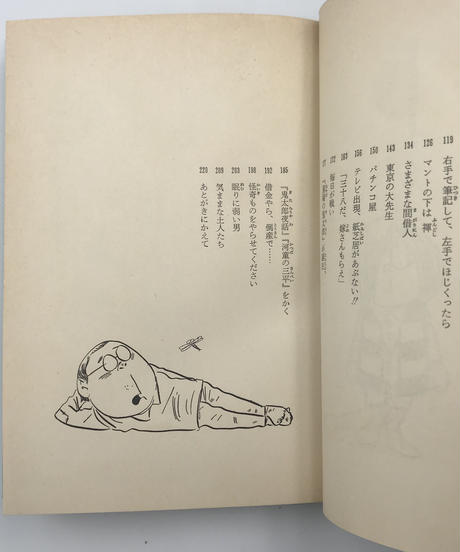 119 右手で筆記して、左手でほじくったら
126 マントの下は褌
134 さまざまな間借人
143 東京の大先生
150 パチンコ屋
156 テレビ出現、紙芝居があぶない!!
163 「三十八だ、嫁さんもらえ」
毎日が戦い
185 『鬼太郎夜話』『河童の三平』をかく
192 借金やら、倒産で……
198 怪奇ものをやらせてください
203 眠りに弱い男
209 気ままな土人たち
220 あとがきにかえて